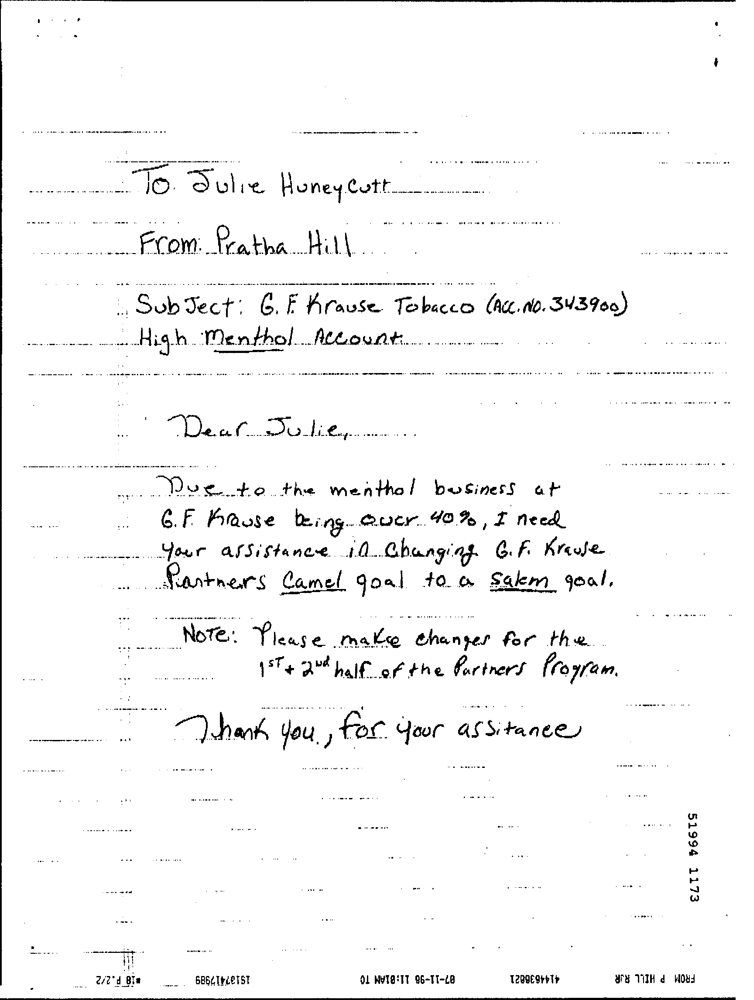 To: Julie Huneycutt
From: Pratha Hill
Subject: G.F. Krause Tobacco (Acc. No. 343900)
High Menthol Account
Dear Julie,
Due to the menthol business at
G.F. Krause being over 40%, I need
your assistance in changing G.F. Krause
Partners Camel goal to a Salem goal.
Note: Please make changes for the
1st + 2nd half of the Partners Program.
Thank you, for your assitance
51994 1173
FROM P HILL RJR 41449636821 07-11-96 11:01AM TO 19107417989 #18 P.2/2